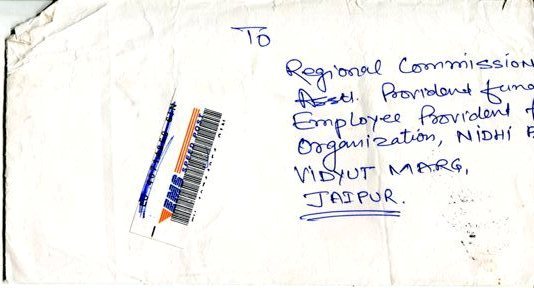 To
Regional Commission
Asstt. Provident fun
Employee Provident f
Organization, NIDHI B
VIDYUT MARG,
JAIPUR.
EMS SPEED POST